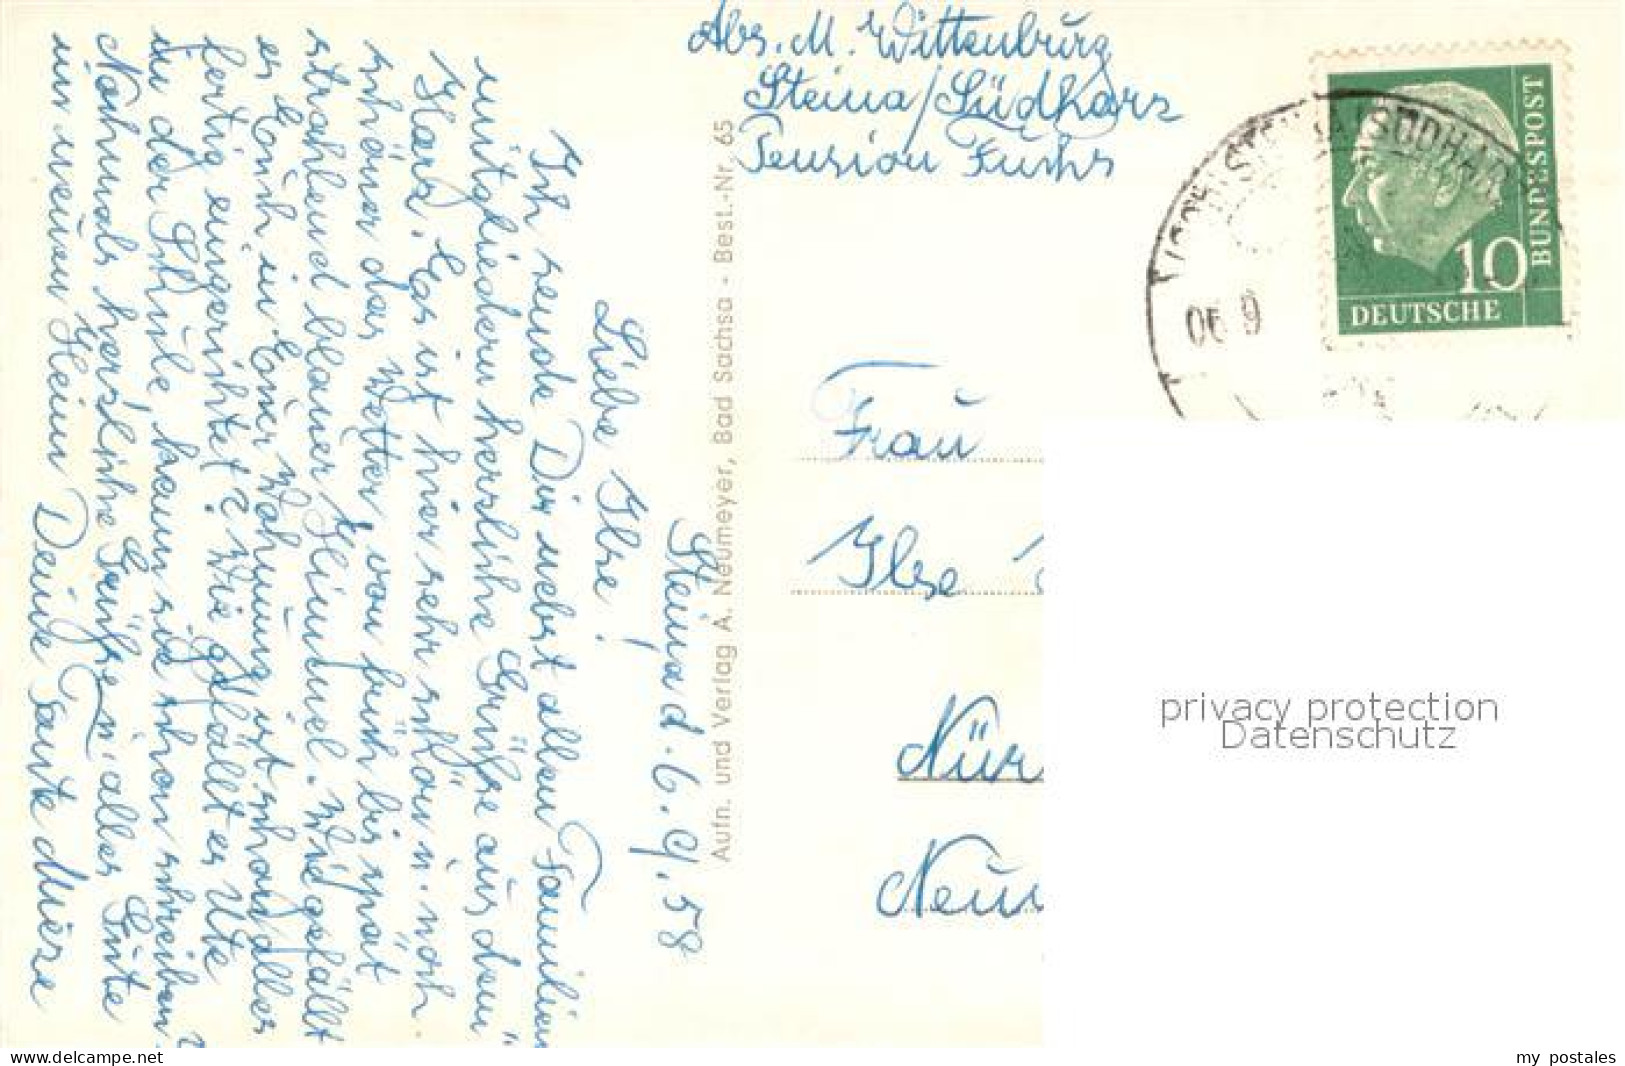 Abs. M. Wittenburg
Steina/Südharz
Pension Fuchs
SÜDHARZ
06.9
DEUTSCHE
BUNDESPOST
10
Steina d. 6.9.58
Liebe Ilse!
Ich sende Dir nebst allen Familien
mitgliedern herzliche Grüsse aus dem
Harz. Es ist hier sehr schön u. noch
schöner das Wetter, von früh bis spät
strahlend blauer Himmel. Wie gefällt
es Euch in Eurer Wohnung ist schon alles
fertig eingerichtet? Wie gefällt es Ute
in der Schule kann sie schon schreiben?
Nochmals herzliche Grüsse u. alles Gute
im neuen Heim Deine Tante Mieze
Aufn. und Verlag A. Neumeyer, Bad Sachsa - Best.-Nr. 65
Frau
Ilse
Nür
Neu
privacy protection
Datenschutz
www.delcampe.net
my_postales